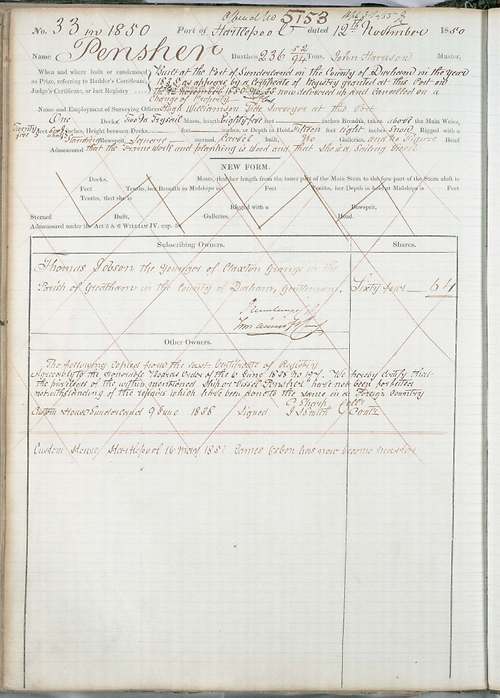 Official No 5153
No. 33 in 1850 Port of Hartlepool dated 12th November 1850
Name Pensher Burthen 236 52/94 Tons. John Harrison Master,
When and where built or condemned as Prize, referring to Builder's Certificate, Judge's Certificate, or last Registry
Built at the Port of Sunderland in the County of Durham in the year
1838 as appears by a Certificate of Registry granted at this Port on
1850 No 35 now delivered and Cancelled on a
Change of Property
Name and Employment of Surveying Officer Hugh Williamson Tide Surveyor at this Port
One Decks, two Masts, length eighty feet inches, Breadth taken above the Main Wales,
Twenty feet 5 inches, Height between Decks, feet inches, or Depth in Hold fifteen feet eight inches Snow Rigged with a
Standing Bowsprit, Square Sterned Carvel built, No Galleries, and no Figure Head
Admeasured that the Frame Work and planking is Wood and that she is a Sailing Vessel
NEW FORM.
Decks, Masts, that her length from the inner part of the Main Stem to the fore part of the Stern aloft is
Feet Tenths, her Breadth in Midships is Feet Tenths, her Depth in hold at Midships is Feet
Tenths, that she is Rigged with a Bowsprit,
Sterned Built, Galleries, Head.
Admeasured under the Act 5 & 6 WILLIAM IV. cap. 56.
Subscribing Owners. Shares.
Thomas Jobson the Younger of Claxton Grange in the
Parish of Greatham in the County of Durham, Gentleman, Sixty four — 64
Other Owners.
The following copied from the last Certificate of Registry
Agreeably to the Honorable Boards Order of the 2 June 1838 No 127 We hereby Certify that
the privileges of the within mentioned Ship or Vessel Penshel have not been forfeited
notwithstanding of the repairs which have been done to the same in a Foreign Country
Custom House Sunderland 9 June 1838 Signed
Custom House Hartlepool 16 may James has now become master